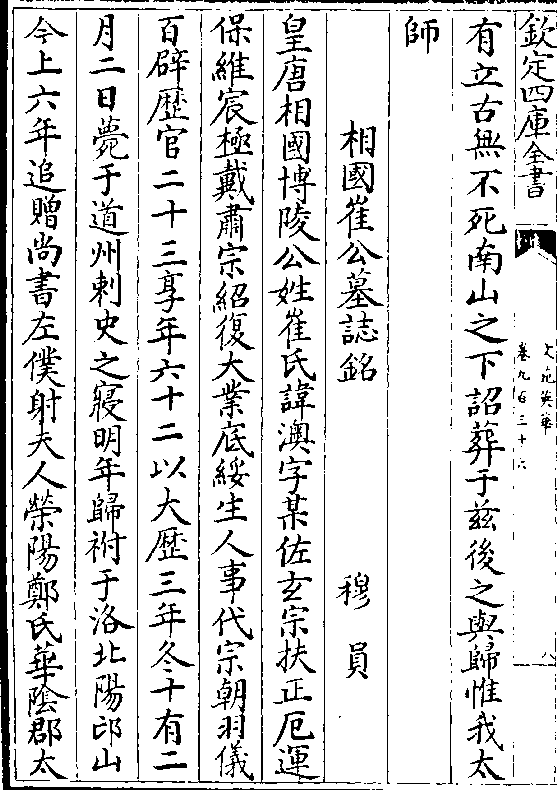 欽定四庫全書
文苑英華
卷九百三十六
八
有立古無不死南山之下詔葬于兹後之與歸惟我太
師
相國崔公墓誌銘 穆員
皇唐相國博陵公姓崔氏諱渙字某佐玄宗扶正厄運
保維宸極戴肅宗紹復大業底綏生人事代宗朝羽儀
百辟歴官二十三享年六十二以大歴三年冬十有二
月二日薨于道州刺史之寢明年歸祔于洛北陽邙山
今上六年追贈尚書左僕射夫人滎陽鄭氏華陰郡太